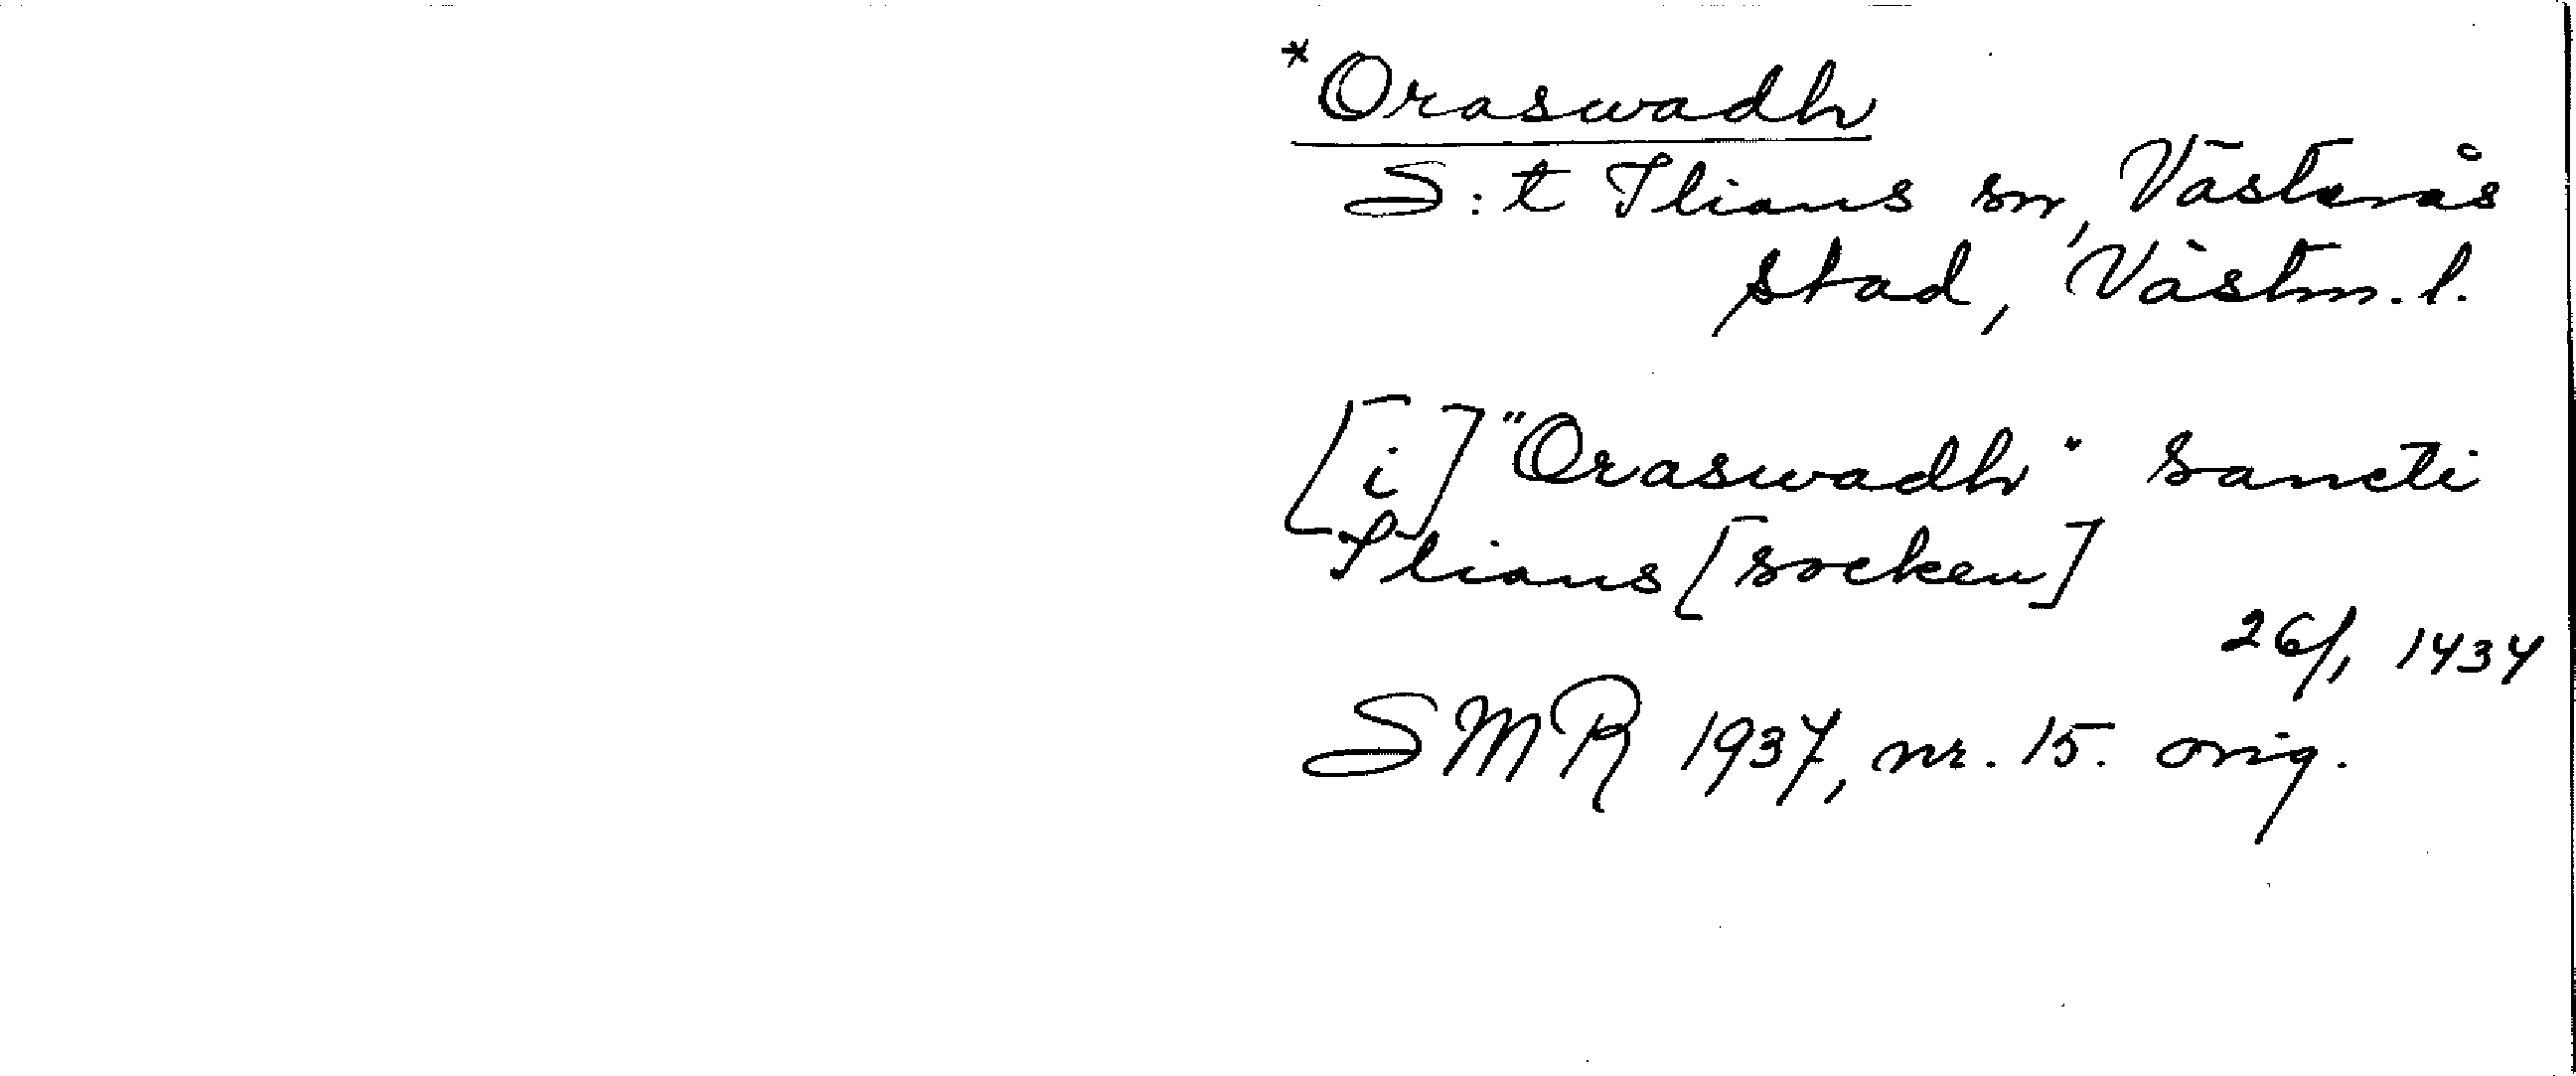 *Oraswadh
S:t Ilians sn, Västerås
stad, Västm. l.
[i] "Oraswadh" Sancti
Ilians [socken]
26/1 1434
SMR 1937, nr. 15. orig.